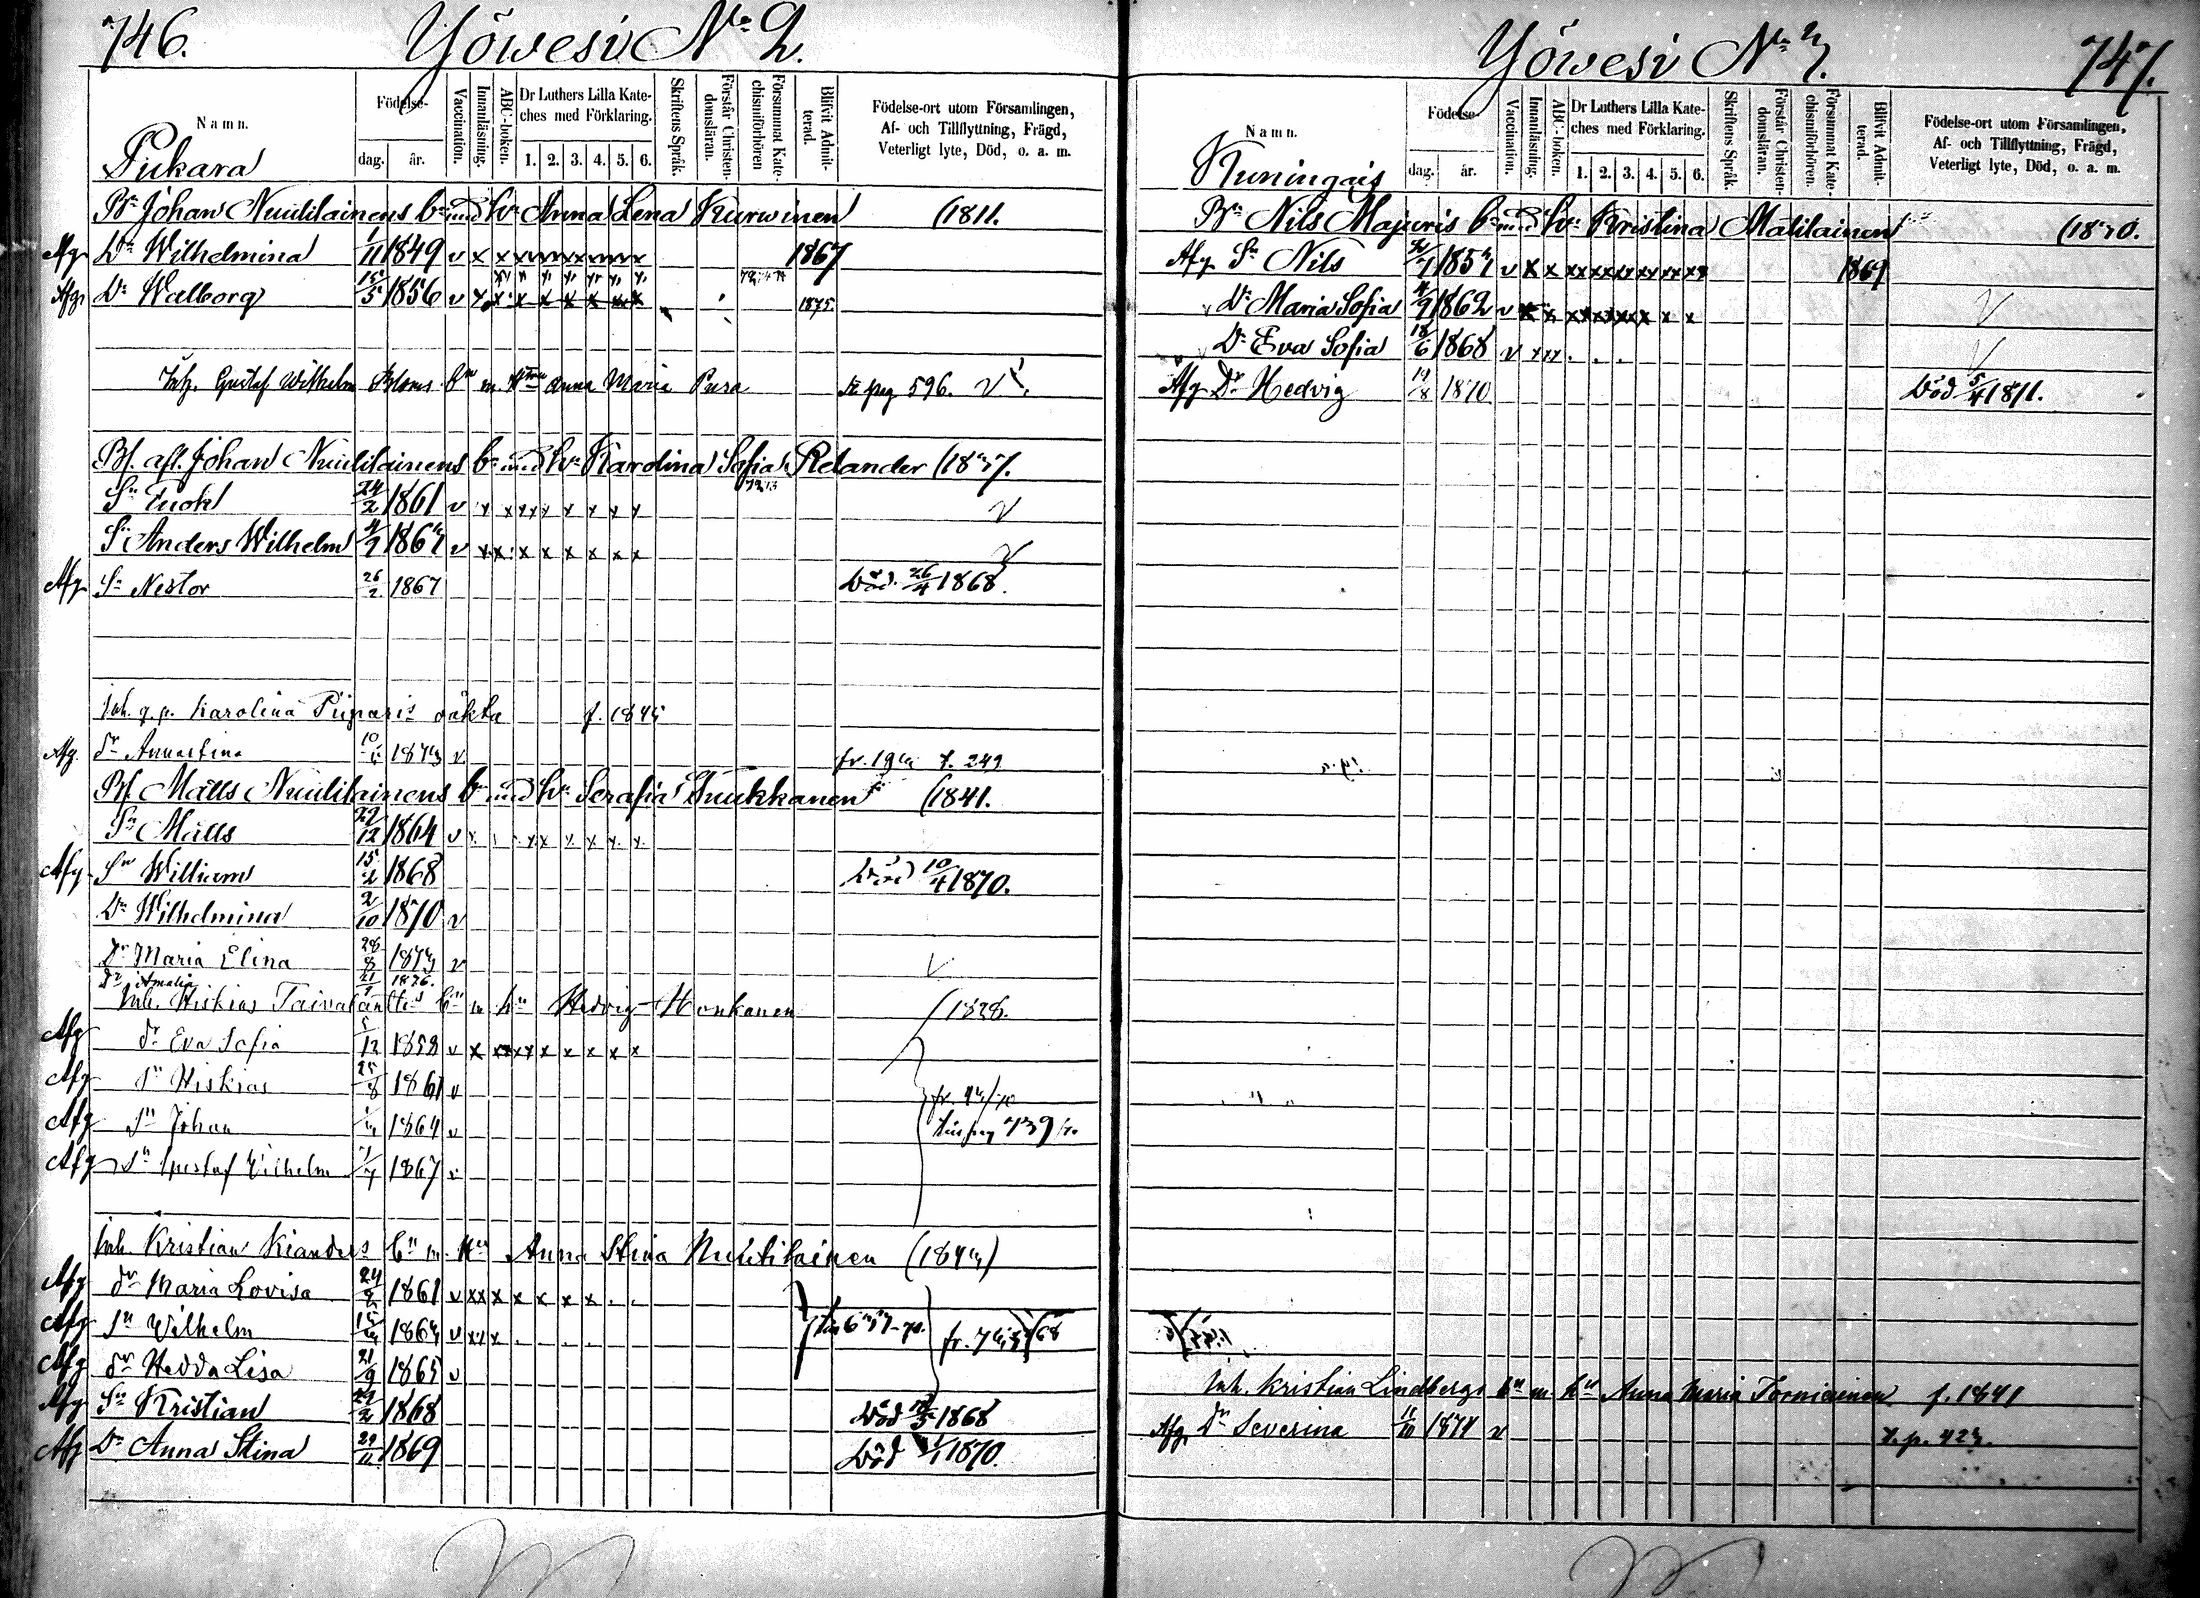 746. Yöwesi No 2.
Namn. Födelse- dag. år. Vaccination. Innanläsning. ABC-boken. Dr Luthers Lilla Kateches med Förklaring. 1. 2. 3. 4. 5. 6. Skriftens Språk. Förstår Christendomsläran. Försummat Katechismiförhören Blifvit Admitterad. Födelse-ort utom Församlingen, Af- och Tillflyttning, Frägd, Veterligt lyte, Död, o. a. m.
Pukara
Bn Johan Nuutilainens bn med hu Anna Lena Kurwinen (1811.
Afg Dr Wilhelmina 1/11 1849 v x x 1867
Afg Dr Walborg 15/5 1856 v 1875.
Inh. Gustaf Wilhelm Bloms bn m Hu Anna Maria Pura se pag 596. v
Bf. afl. Johan Nuutilainens bn med hu Karolina Sofia Relander (1837.
Sn Enok 24/2 1861 v x x x x x x x x v
Sn Anders Wilhelm 4/9 1863 v x x x x x x x x v
Afg Sn Nestor 26/2 1867 Död 26/4 1868.
Inh. q.p. Karolina Piiparis oäkta f. 1845
Afg. dr Annastina 10/ 1873 v t. 249
Bf Matts Nuutilainens bn med hu Serafia Tuukkanen (1841.
Sn Matts 29/12 1864 v x x x x x x x
Afg Sn William 15/2 1868 Död 10/4 1870.
Dr Wilhelmina 2/10 1870 v
Dr Maria Elina 28/8 1873 v v
Dr Amalia 21/1 1876.
Inh. Hiskias bn m hu Hedvig Honkanen (1828.
Afg dr Eva Sofia 5/12 1858 v x x x x x x x x x
Afg Sn Hiskias 25/8 1861 v
Afg Sn Johan 1864 v
739
Afg Sn Gustaf Wilhelm 7/7 1867 v
Inh. Kristian Kianders bn m Hu Anna Stina Nuutilainen (1843)
Afg dr Maria Lovisa 24/8 1861 v x x x x x x x
Afg Sn Wilhelm 1863 v x x x
Afg dr Hedda Lisa 21/9 1865 v
Afg Sn Kristian 29/2 1868 Död 1868
Afg Dr Anna Stina 29/11 1869 Död 1/1 1870.
Yöwesi No 3. 747.
Namn. Födelse- dag. år. Vaccination. Innanläsning. ABC-boken. Dr Luthers Lilla Kateches med Förklaring. 1. 2. 3. 4. 5. 6. Skriftens Språk. Förstår Christendomsläran. Försummat Katechismiförhören. Blifvit Admitterad. Födelse-ort utom Församlingen, Af- och Tillflyttning, Frägd, Veterligt lyte, Död, o. a. m.
Kuningais
Bn Nils Majuris bn med hu Kristina Matilainen (1830.
Afg Sn Nils 1853 v x x 1869
Dr Maria Sofia 4/9 1862 v v
Dr Eva Sofia 18/6 1868 v x x x . . . v
Afg Dr Hedvig 19/8 1870 Död 5/4 1871.
Inh. Kristian Lindbergs bn m hu Anna Maria Torniainen f. 1841
Afg. Dr Severina 11/10 1874 v t. p. 423.